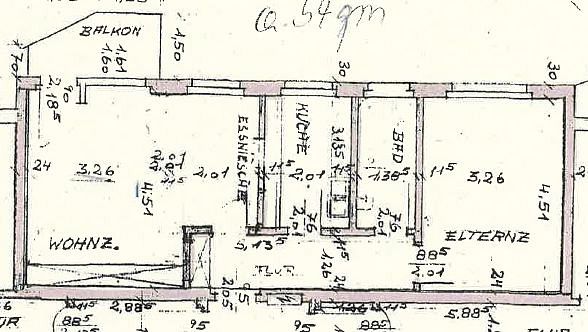 ca. 54 qm
BALKON
1,61
1,60
1,50
70
30
30
90
2,18⁵
24
3,26
2,01
ESSNIESCHE
4,51
KÜCHE
3,135
11⁵
2,01
BAD
1,38⁵
11⁵
3,26
4,51
76
2,01
76
2,01
WOHNZ.
5,13⁵
ELTERNZ
FLUR
11⁵
1,26
24
88⁵
2,01
24
11⁵
2,88⁵
5,88⁵
11⁵
88⁵
95
95
88⁵